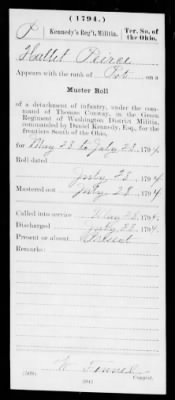 (1794.)
P Kennedy's Reg't, Militia. Ter. So. of the Ohio.
Hallet Peirce
Appears with the rank of Pvt. on a
Muster Roll
of a detachment of infantry, under the command of Thomas Conway, in the Greek Regiment of Washington District Militia, commanded by Daniel Kennedy, Esq., for the frontiers South of the Ohio,
for May 23 to July 23, 1794
Roll dated
July 23, 1794
Mustered out July 23, 1794
Called into service May 23, 1794.
Discharged July 23, 1794
Present or absent Present
Remarks:
Copyist.